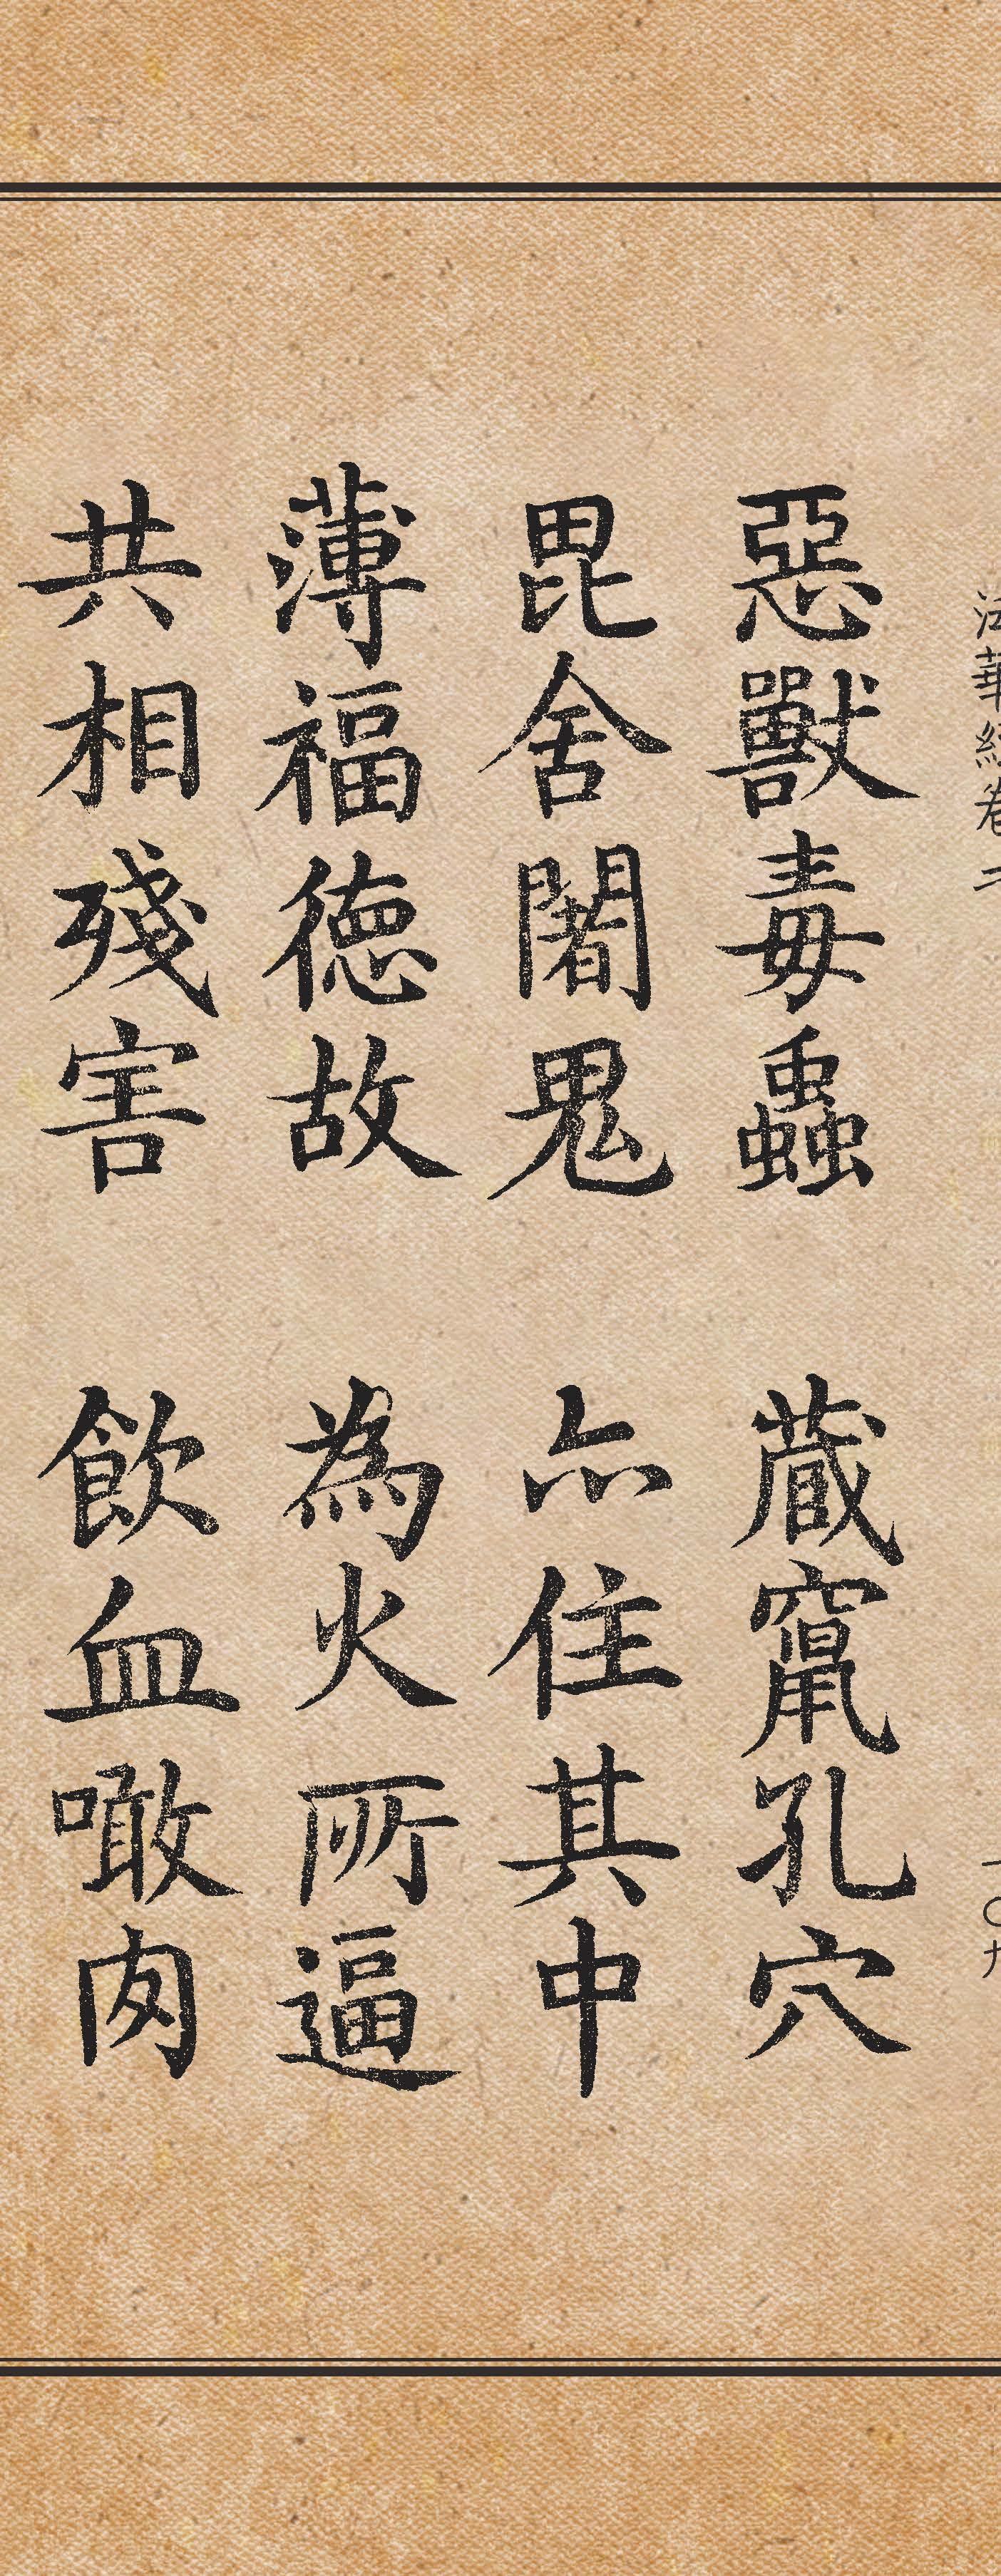 法華經卷二 一〇九
惡獸毒蟲 藏竄孔穴
毘舍闍鬼 亦住其中
薄福德故 為火所逼
共相殘害 飲血噉肉